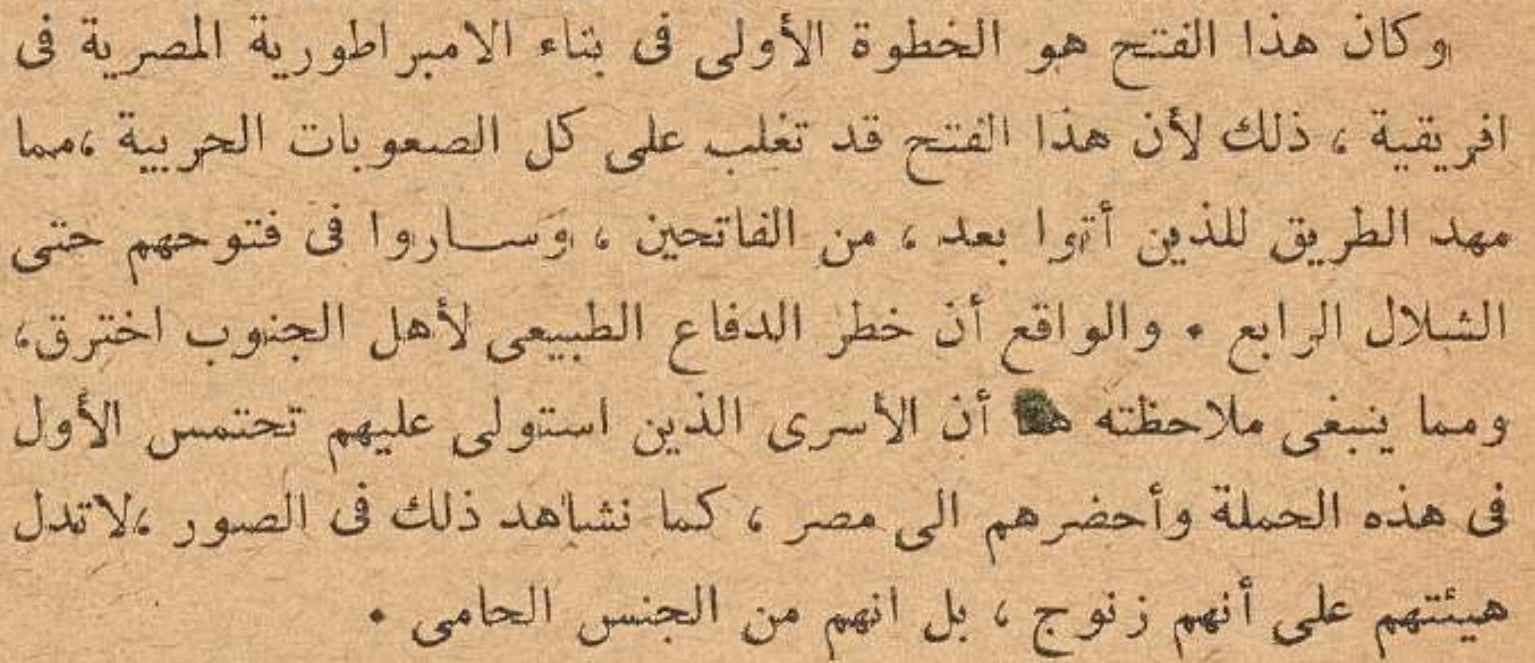 وكان هذا الفتح هو الخطوة الأولى فى بناء الامبراطورية المصرية فى
افريقية ، ذلك لأن هذا الفتح قد تغلب على كل الصعوبات الحربية ،مما
مهد الطريق للذين أتوا بعد ، من الفاتحين ، وساروا فى فتوحهم حتى
الشلال الرابع . والواقع أن خطر الدفاع الطبيعى لأهل الجنوب اخترق،
ومما ينبغى ملاحظته أن الأسرى الذين استولى عليهم تحتمس الأول
فى هذه الحملة وأحضرهم الى مصر ، كما نشاهد ذلك فى الصور ،لاتدل
هيئتهم على أنهم زنوج ، بل انهم من الجنس الحامى .